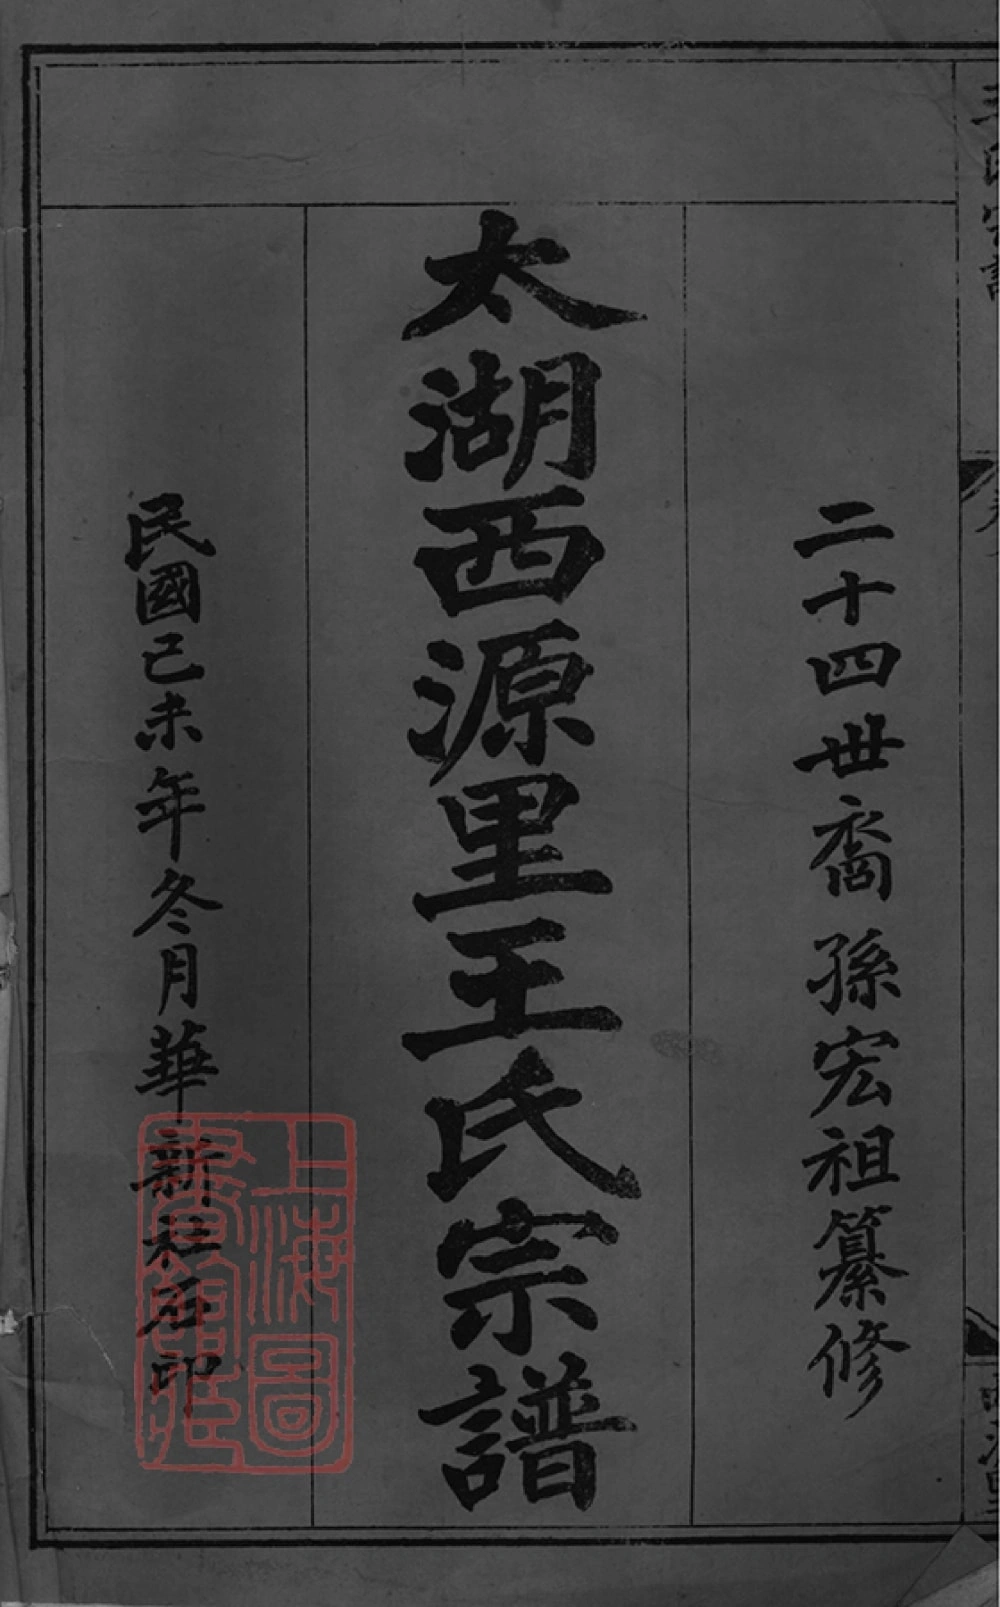 二十四世裔孫宏祖纂修
太湖西源里王氏宗譜
民國己未年冬月華新社石印
上海圖書館藏